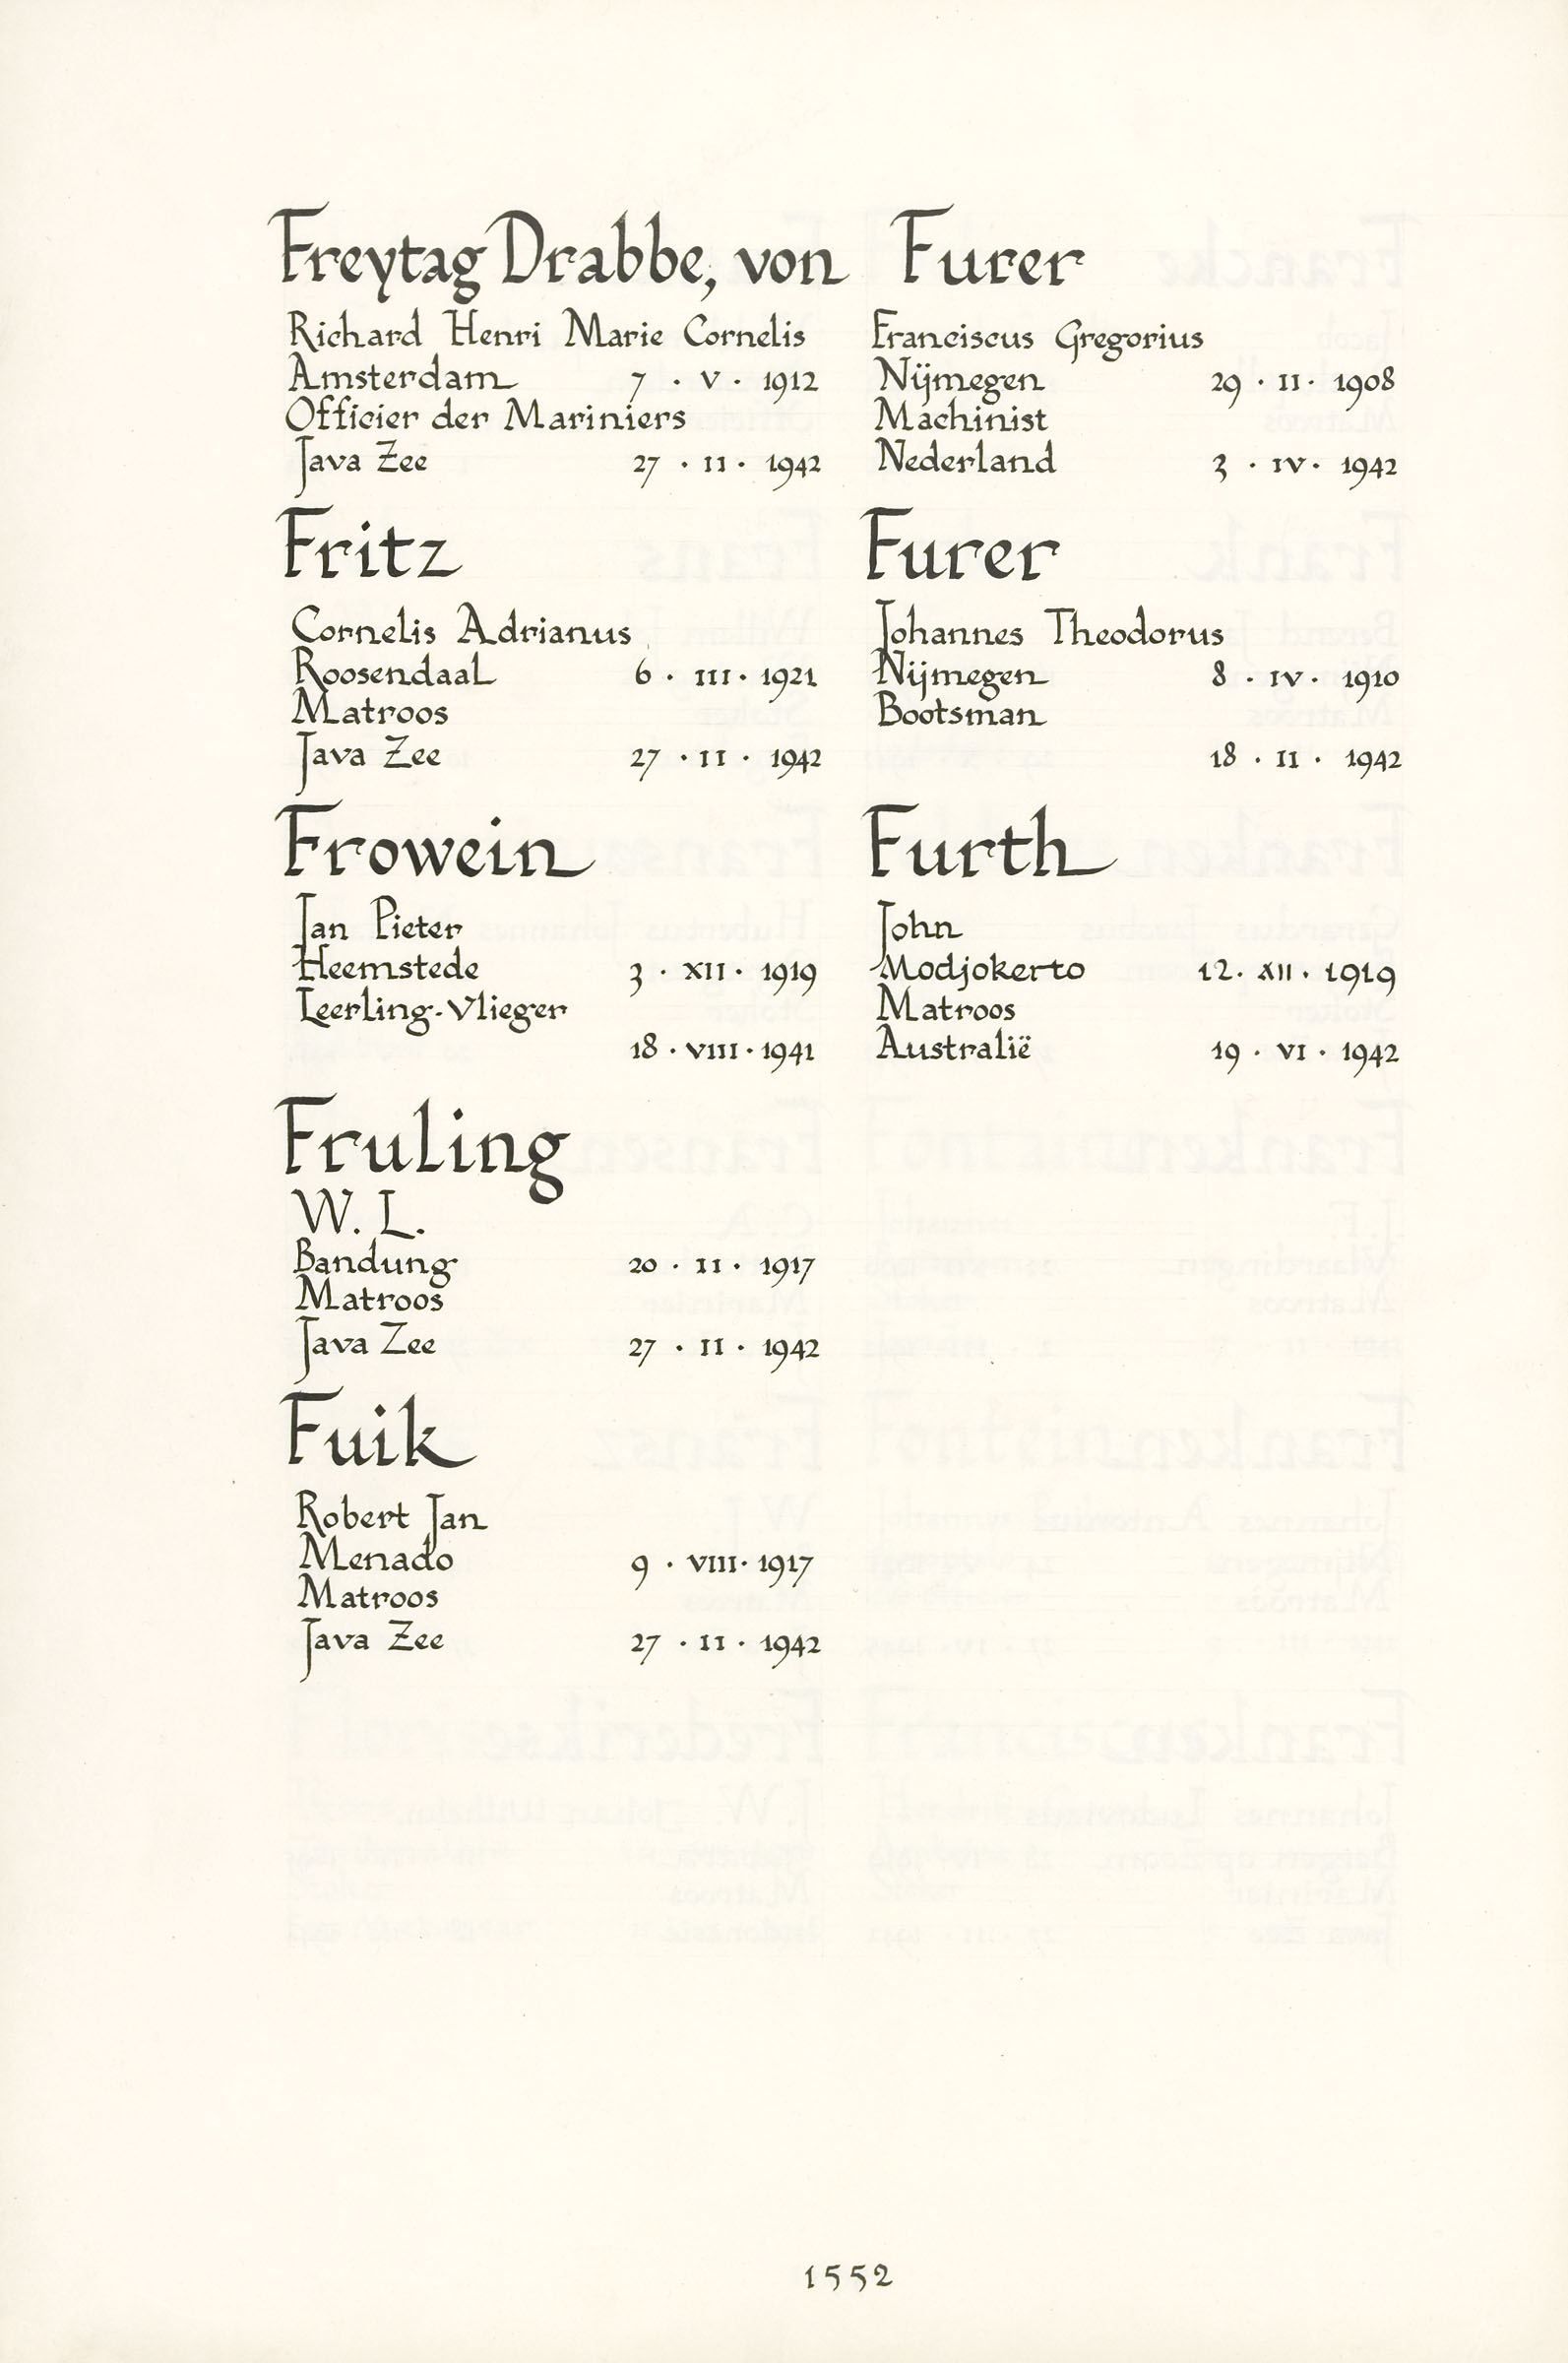 Freytag Drabbe, von
Richard Henri Marie Cornelis
Amsterdam 7 · V · 1912
Officier der Mariniers
Java Zee 27 · II · 1942
Fritz
Cornelis Adrianus
Roosendaal 6 · III · 1921
Matroos
Java Zee 27 · II · 1942
Frowein
Jan Pieter
Heemstede 3 · XII · 1919
Leerling-Vlieger
18 · VIII · 1941
Fruling
W. L.
Bandung 20 · II · 1917
Matroos
Java Zee 27 · II · 1942
Fuik
Robert Jan
Menado 9 · VIII · 1917
Matroos
Java Zee 27 · II · 1942
Furer
Franciscus Gregorius
Nijmegen 29 · II · 1908
Machinist
Nederland 3 · IV · 1942
Furer
Johannes Theodorus
Nijmegen 8 · IV · 1910
Bootsman
18 · II · 1942
Furth
John
Modjokerto 12 · XII · 1919
Matroos
Australië 19 · VI · 1942
1552